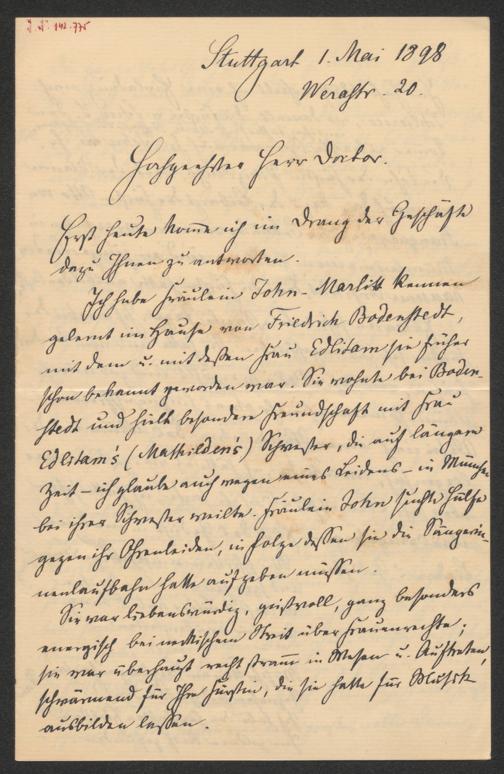 J. N. 142.775
Stuttgart 1. Mai 1898
Werastr. 20.
Hochgeehrter Herr Doctor.
Erst heute komme ich im Drang der Geschäfte
dazu Ihnen zu antworten.
Ich habe Fräulein John-Marlitt kennen
gelernt im Hause von Friedrich Bodenstedt,
mit dem u. mit dessen Frau Edlitam sie früher
schon bekannt geworden war. Sie wohnte bei Boden-
stedt und hielt besondere Freundschaft mit Frau
Edlitam's (Mathilden's) Schwester, die auf längere
Zeit – ich glaube auch wegen eines Leidens – in München
bei ihrer Schwester weilte. Fräulein John suchte Hülfe
gegen ihr Ohrenleiden, in Folge dessen sie die Sängerin-
nenlaufbahn hatte aufgeben müssen.
Sie war liebenswürdig, geistvoll, ganz besonders
energisch bei neckischem Streit über Frauenrechte;
sie war überhaupt recht stramm in Wesen u. Auftreten,
schwärmend für Ihre Fürstin, die sie hatte für Musik
ausbilden lassen.